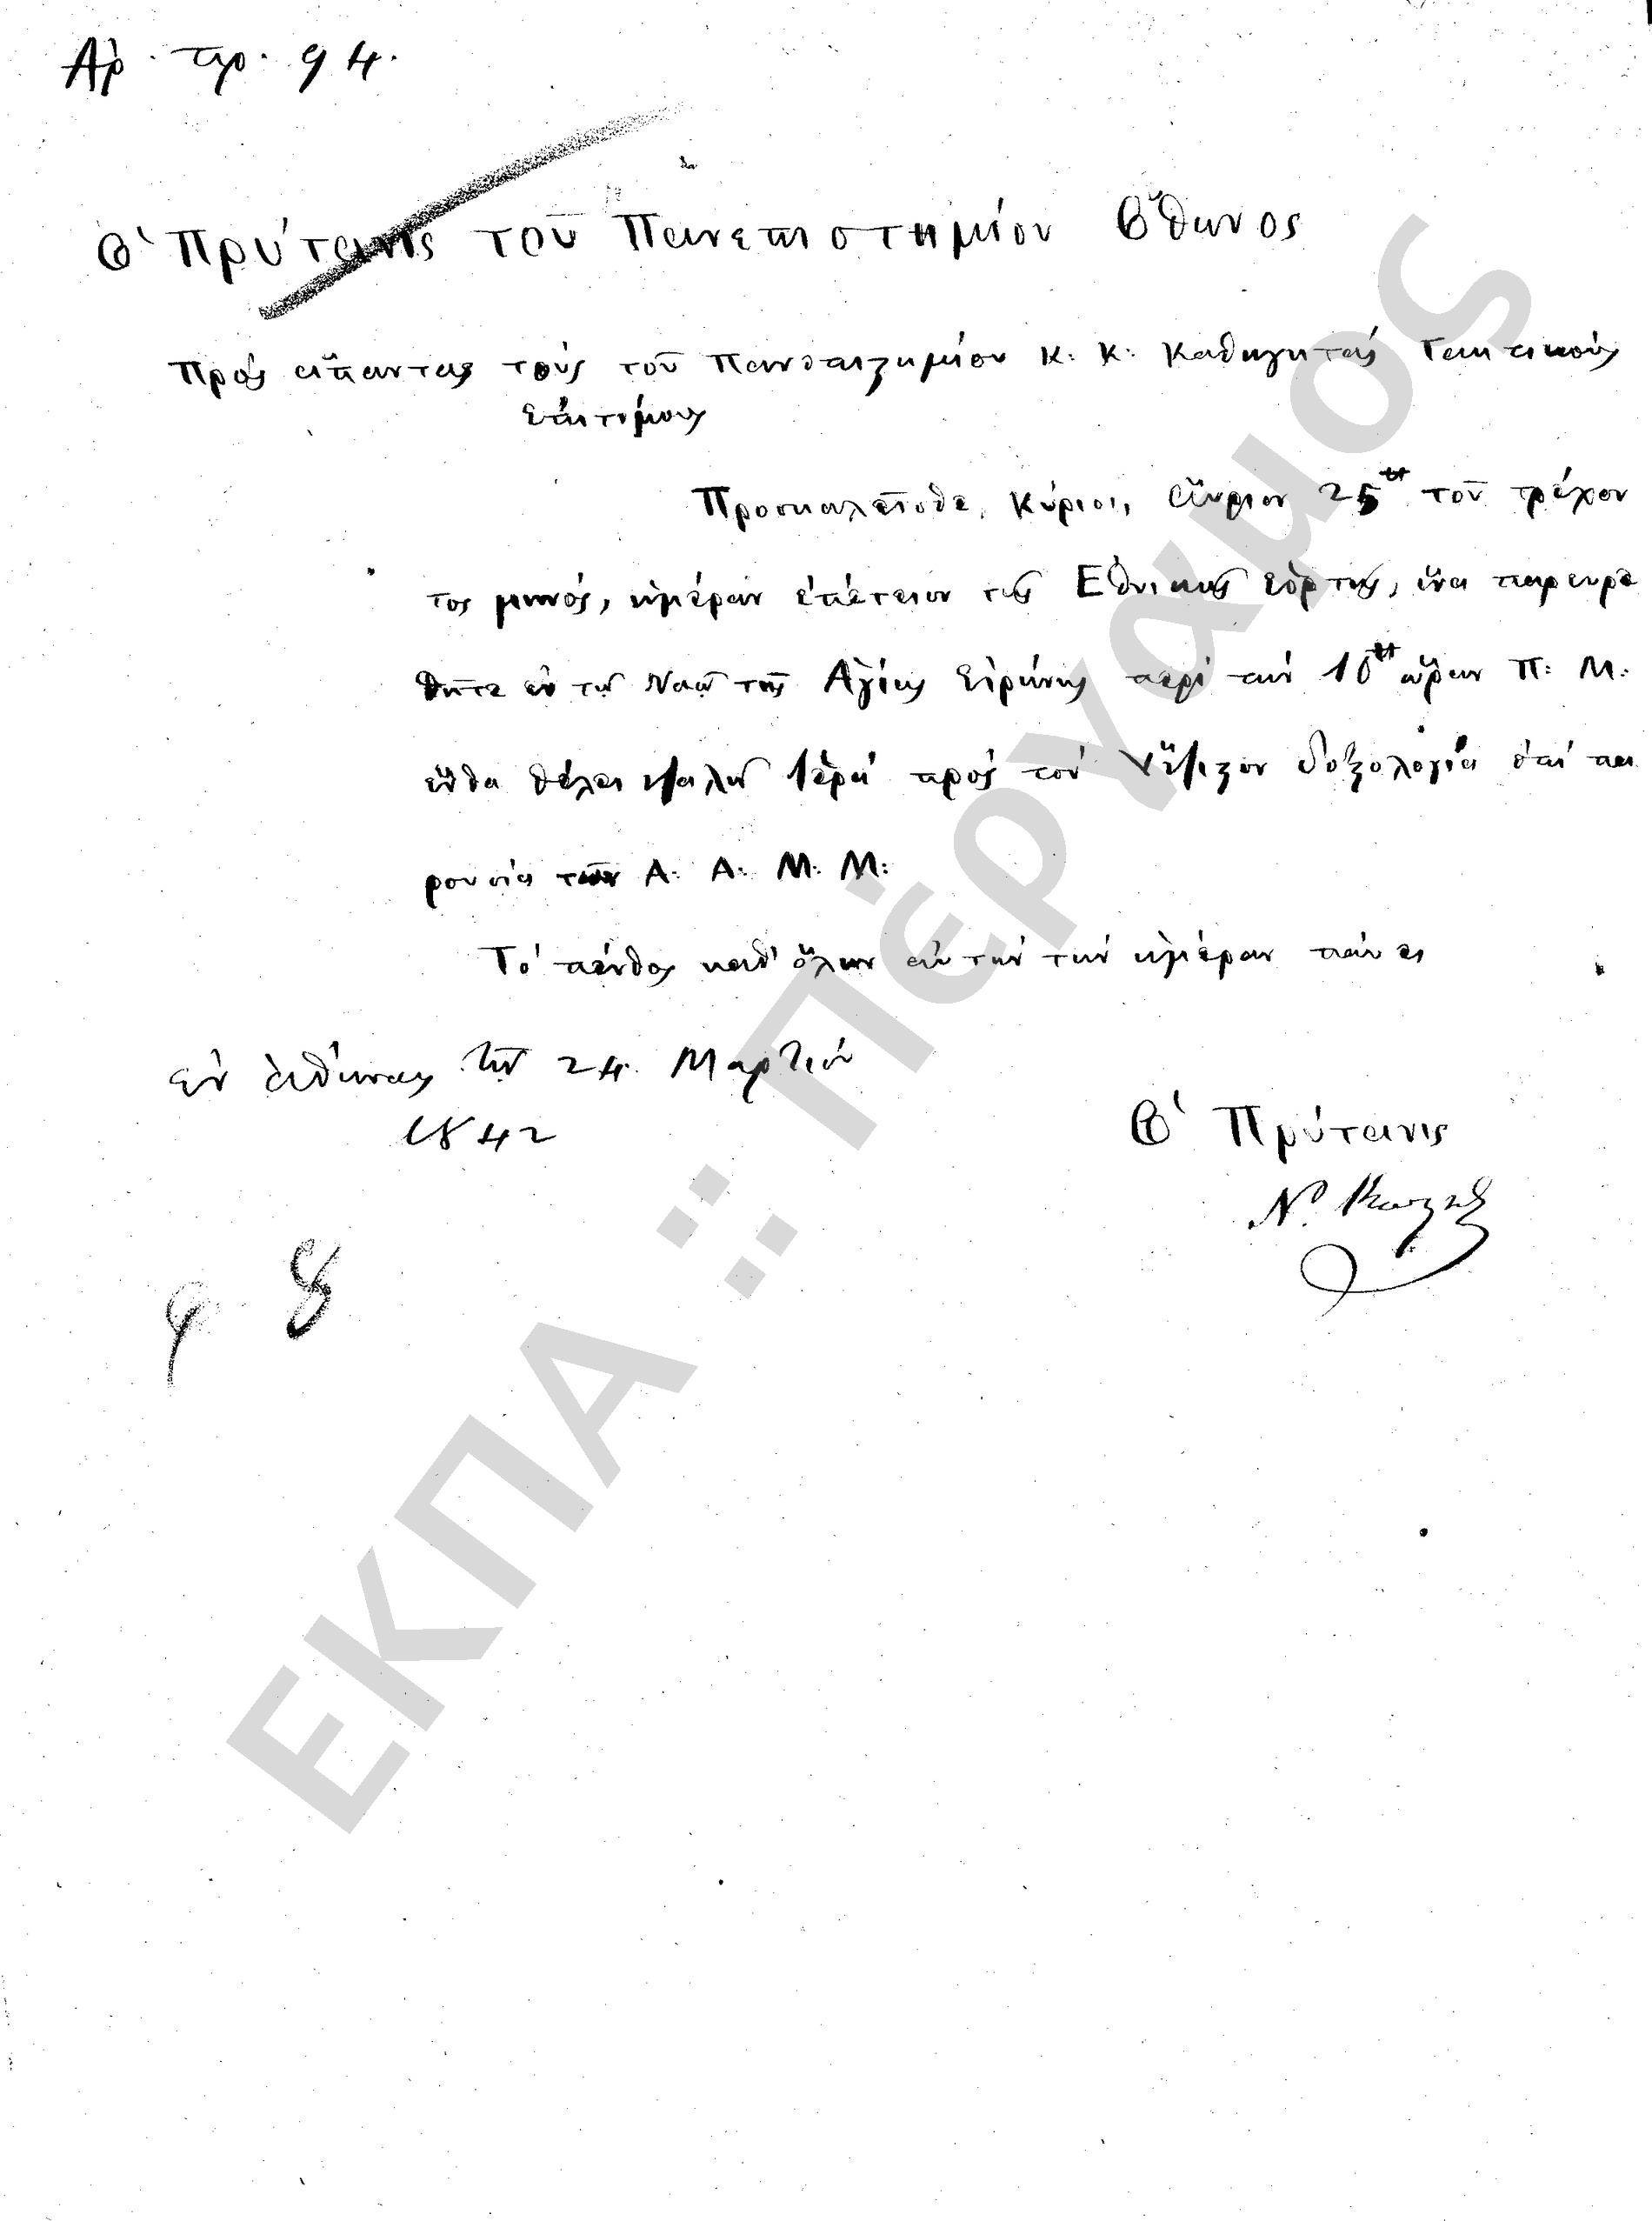 Ἀρ. πρ. 94.
Ὁ Πρύτανις τοῦ Πανεπιστημίου Ὄθωνος
Πρὸς ἅπαντας τοὺς τοῦ Πανεπιστημίου Κ: Κ: Καθηγητὰς Τακτικοὺς
Ἐπιτίμους
Προσκαλεῖσθε, Κύριοι, αὔριον 25ην τοῦ τρέχον
τος μηνός, ἡμέραν ἐπέτειον τῆς Ἐθνικῆς ἑορτῆς, ἵνα παρευρε
θῆτε ἐν τῷ Ναῷ τῆς Ἁγίας Εἰρήνης περὶ τὴν 10ην ὥραν Π: Μ:
ἔνθα θέλει ψαλῆ ἱερὰ πρὸς τὸν Ὕψιστον δοξολογία ἐπὶ πα
ρουσίᾳ τῶν Α: Α: Μ: Μ:
Τὸ πένθος καθ' ὅλην αὐτὴν τὴν ἡμέραν παύει
Ἐν Ἀθήναις τῇ 24. Μαρτίου
1842
Ὁ Πρύτανις
Ν. Κωστῆς
φ 8
ΕΚΠΑ :: Πέργαμος